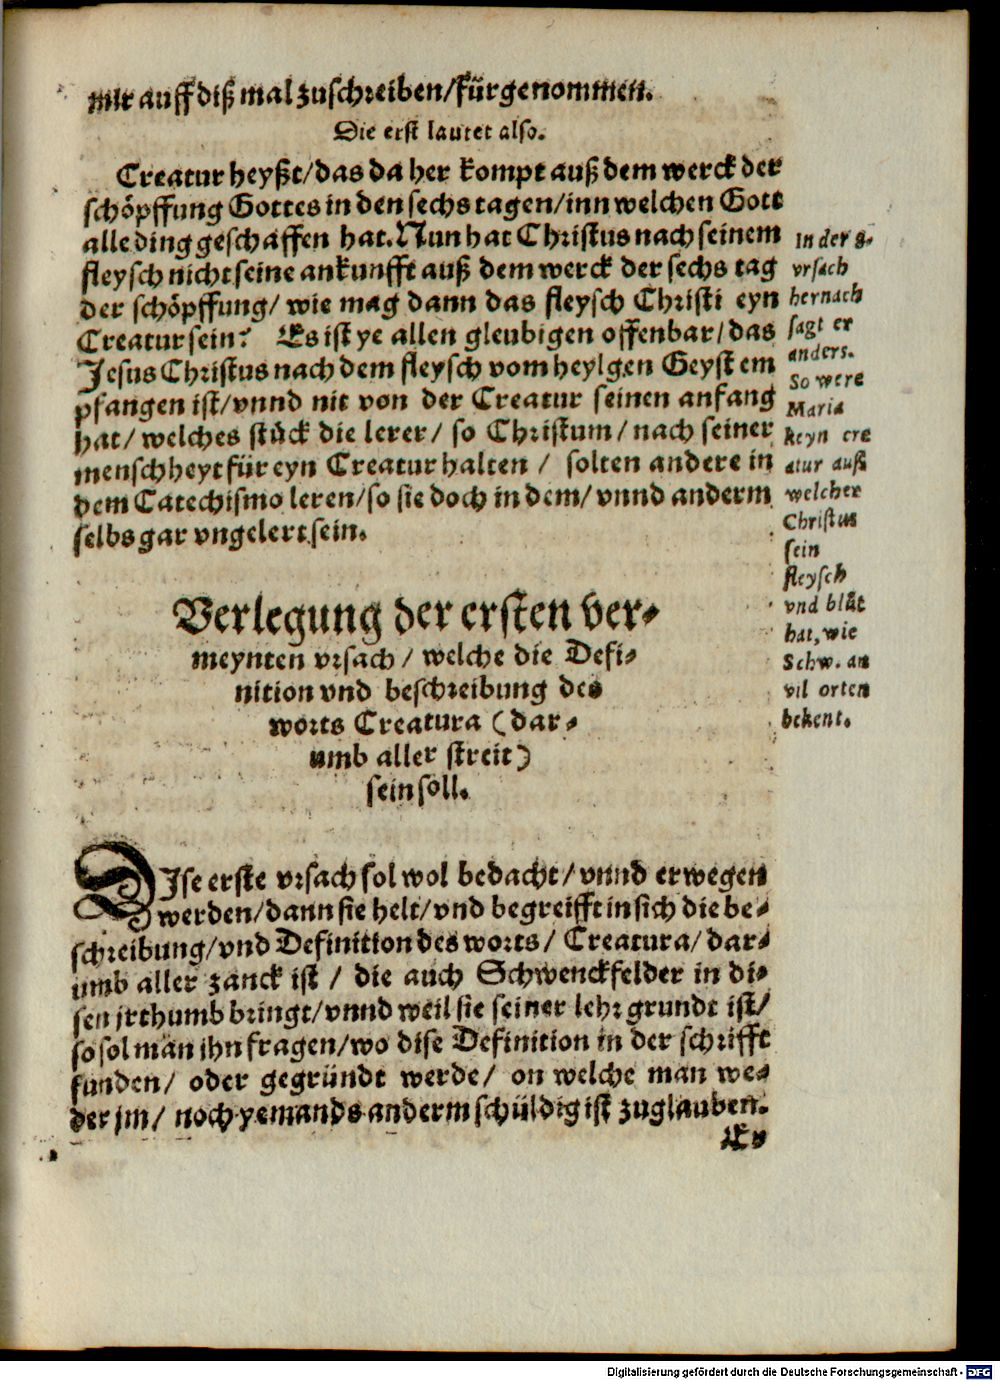 mir auff diß mal zuschreiben/fürgenommen.
Die erst lautet also.
Creatur heyßt/das da her kompt auß dem werck der
schöpffung Gottes in den sechs tagen/inn welchen Gott
alle ding geschaffen hat. Nun hat Christus nach seinem
fleysch nicht seine ankunfft auß dem werck der sechs tag
der schöpffung/ wie mag dann das fleysch Christi eyn
Creatur sein? Es ist ye allen gleubigen offenbar/das
Jesus Christus nach dem fleysch vom heylgen Geyst em
pfangen ist/vnnd nit von der Creatur seinen anfang
hat/ welches stück die lerer/ so Christum/nach seiner
menschheyt für eyn Creatur halten / solten andere in
dem Catechismo leren/so sie doch in dem/vnnd anderm
selbs gar vngelert sein.
In der 8.
vrsach
hernach
sagt er
anders.
So were
Maria
keyn cre
atur auß
welcher
Christus
sein
fleysch
vnd blůt
hat, wie
Schw. an
vil orten
bekent.
Verlegung der ersten ver⸗
meynten vrsach/ welche die Defi⸗
nition vnd beschreibung des
worts Creatura (dar⸗
umb aller streit)
sein soll.
DIse erste vrsach sol wol bedacht/vnnd erwegen
werden/dann sie helt/vnd begreifft in sich die be⸗
schreibung/vnd Definition des worts/ Creatura/dar⸗
umb aller zanck ist / die auch Schwenckfelder in di⸗
sen jrthumb bringt/vnnd weil sie seiner lehr grundt ist/
so sol man ihn fragen/wo dise Definition in der schrifft
funden/ oder gegründt werde/ on welche man we⸗
der jm/ noch yemands anderm schüldig ist zuglauben.
Es
Digitalisierung gefördert durch die Deutsche Forschungsgemeinschaft - DFG